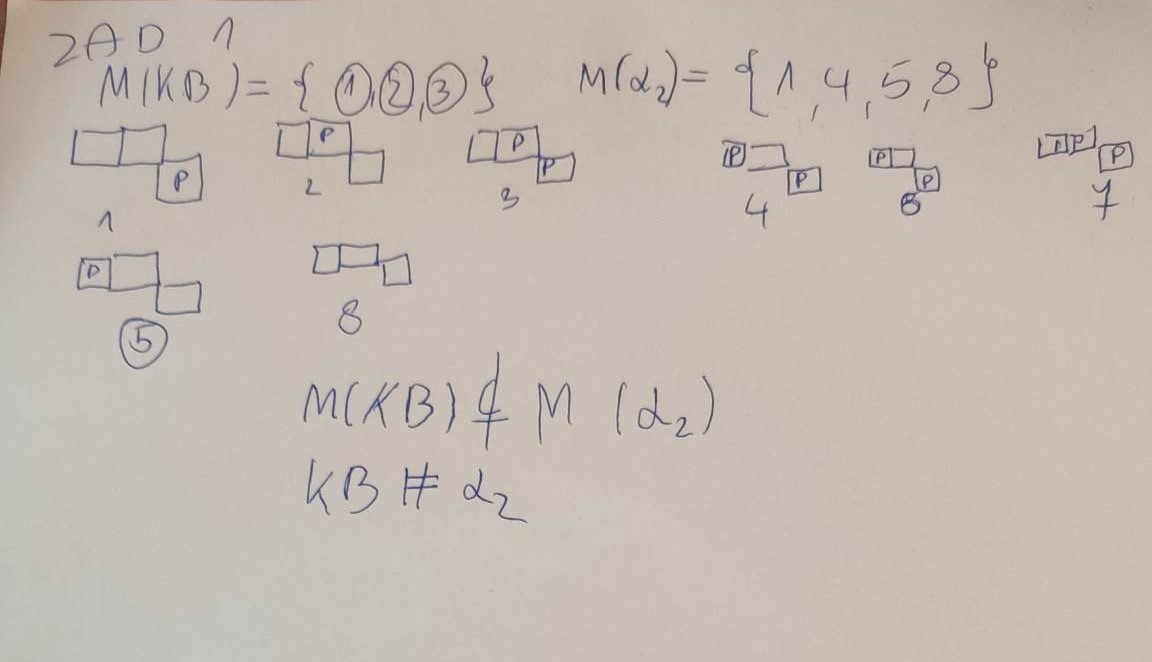 ZAD 1
M(KB) = { ①, ②, ③ } M(α₂) = { 1, 4, 5, 8 }
P P P P P P P P P P P
1 2 3 4 6 7
P
⑤ 8
M(KB) ⊄ M (α₂)
KB ⊭ α₂